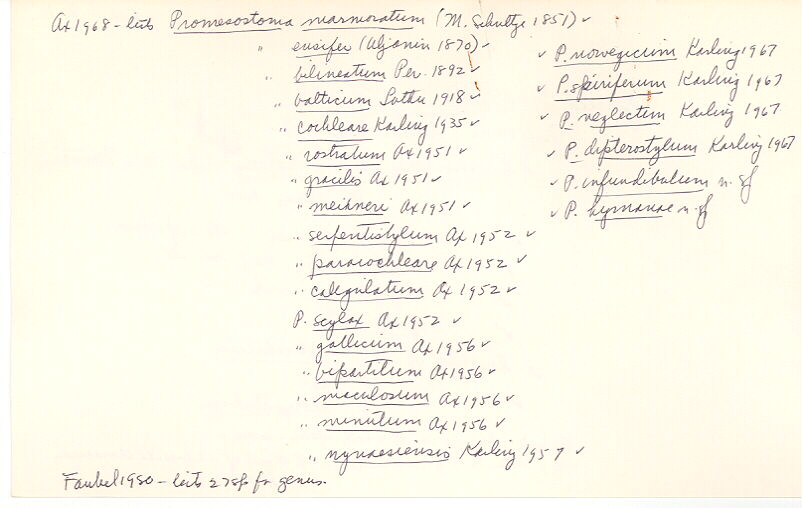 Ax 1968 - lists Promesostoma marmoratum (M. Schultze 1851) ✓
" ensifer (Uljanin 1870) ✓
" bilineatum Per. 1892 ✓
" balticum Luther 1918 ✓
" cochleare Karling 1935 ✓
" rostratum Ax 1951 ✓
" gracilis Ax 1951 ✓
" meixneri Ax 1951 ✓
" serpentistylum Ax 1952 ✓
" paracochleare Ax 1952 ✓
" caligulatum Ax 1952 ✓
P. scylax Ax 1952 ✓
" gallicum Ax 1956 ✓
" bipartitum Ax 1956 ✓
" maculosum Ax 1956 ✓
" minutum Ax 1956 ✓
" nynaesiensis Karling 1957 ✓
✓ P. norvegicum Karling 1967
✓ P. spiriferum Karling 1967
✓ P. neglectum Karling 1967
✓ P. dipterostylum Karling 1967
✓ P. infundibulum n. sp
✓ P. hymanae n. sp
Faubel 1980 - lists 27 sp for genus.